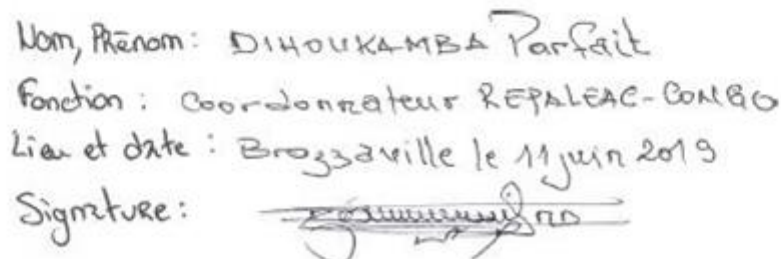 Nom, Prénom: DIHOUKAMBA Parfait
Fonction: Coordonnateur REPALEAC-CONGO
Lieu et date: Brazzaville le 11 juin 2019
Signature: